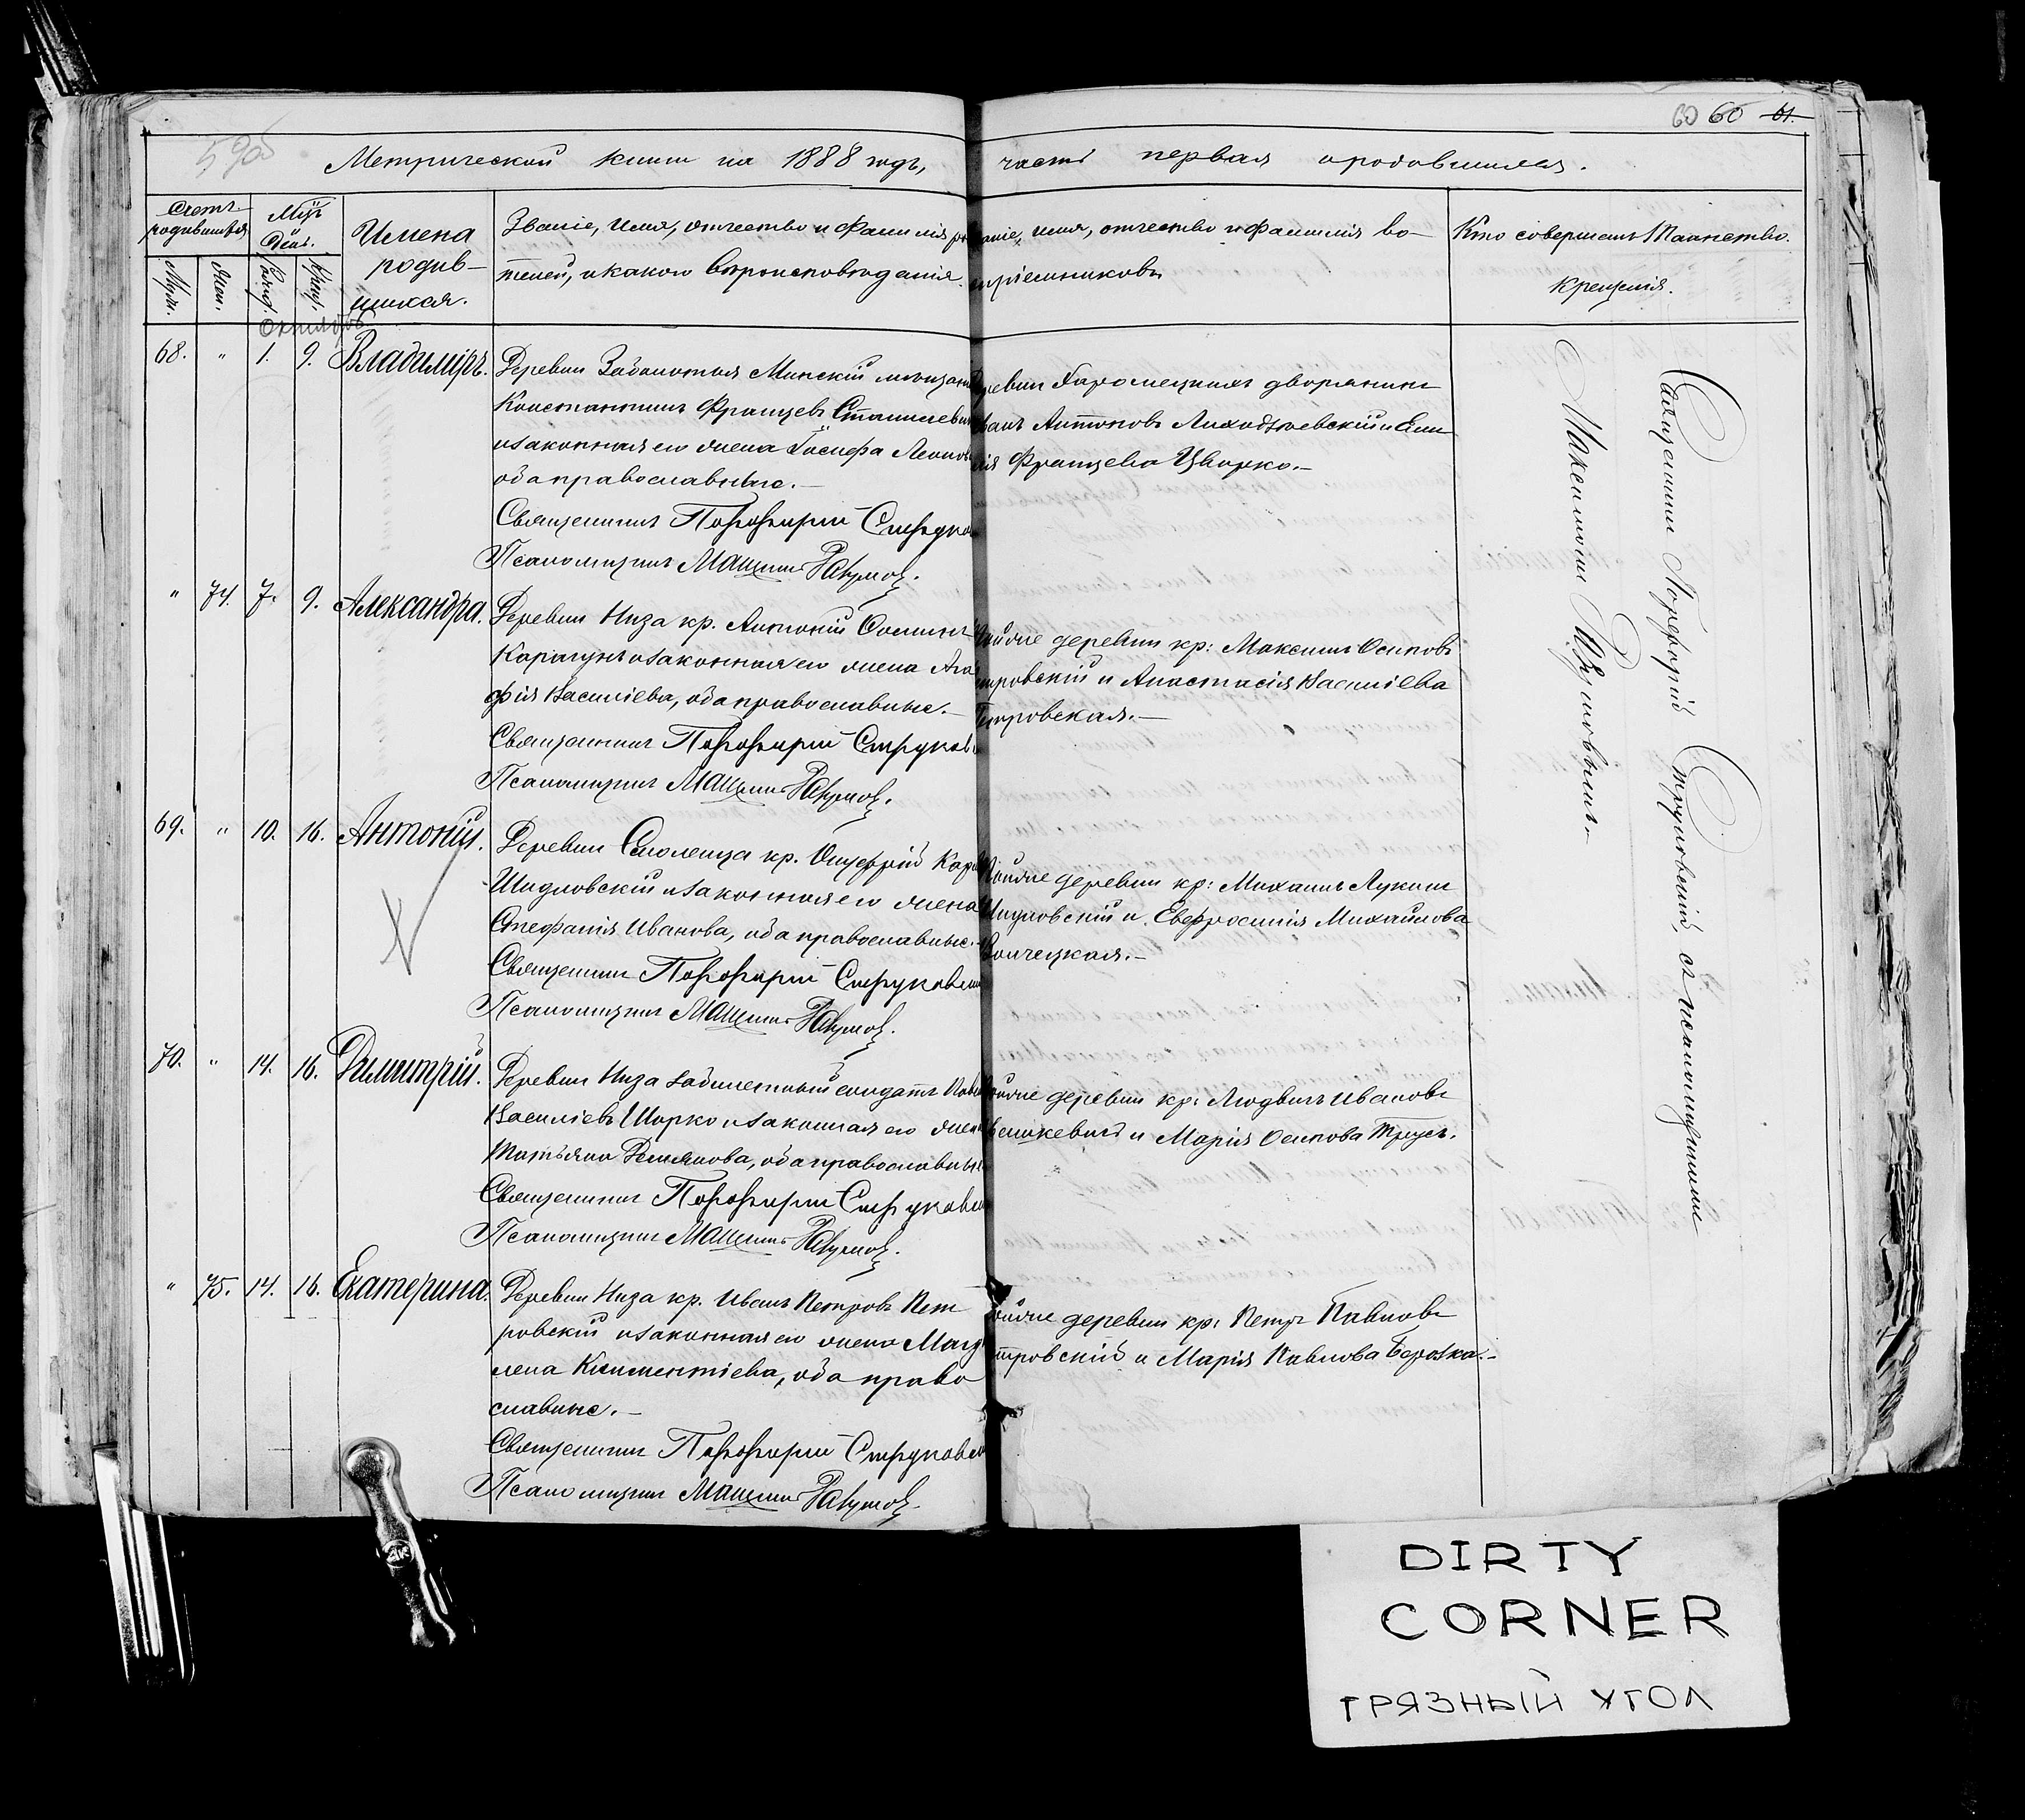 60 60 61.
Метрической книги на 1888 годъ, часть первая о родившихся.
Счетъ родившихся
Мѣс. и день.
Имена родив-
шихся.
Званіе, имя, отчество и фамилія ро
телей, и какого вѣроисповѣданія.
аніе, имя, отчество и фамилія во-
спріемниковъ
Кто совершалъ Таинство
крещенія.
Муж.
Жен.
Рожд.
Крещ.
Октябрь
68. " 1. 9. Владиміръ.
Деревни Заболотья Минскій мѣщани
Константинъ Францевъ Станилеви
и законная его жена Іосифа Леонов
оба православные.—
Священникъ Порфирій Струков
Псаломщикъ Максим Разумов.
ревни дворянинъ
ванъ Антоновъ Лиходзіевскій и Еми
лія Францева Цварко.—
" 74. 7. 9. Александра.
Деревни Низа кр. Антоній Осипов
Карагунъ и законная его жена Ага
фія Васильева, оба православные.—
Священникъ Порфирій Струков
Псаломщикъ Максим Разумов.
тойже деревни кр: Максимъ Осиповъ
тровскій и Анастасія Васильева
Петровская.—
69. " 10. 16. Антоній.
Деревни Смоленца кр. Онуфрій Кар
Шидловскій и законная его жена
Стефанія Иванова, оба православные.—
Священникъ Порфирій Струковск
Псаломщикъ Максим Разумов.
тойже деревни кр: Михаилъ Лукинъ
Шидловскій и Евфросинія Михайлова
Волчецкая.—
70. " 14. 16. Димитрій.
Деревни Низа забилетный солдатъ Пав
Васильевъ Шорко и законная его жен
Татьяна Демьянова, оба православны
Священникъ Порфирій Струковск
Псаломщикъ Максим Разумов.
тойже деревни кр: Людвигъ Ивановъ
сюкевичъ и Марія Осипова Трусъ.
" 75. 14. 16. Екатерина.
Деревни Низа кр. Иванъ Петровъ Пет
ровскій и законная его жена Магд
лена Климентіева, оба право
славные.—
Священникъ Порфирій Струковск
Псаломщикъ Максим Разумов.
тойже деревни кр: Петръ Павловъ
тровскій и Марія Павлова Березка.—
Священникъ Порфирій Струковскій, съ псаломщикомъ
Максимомъ Разумовымъ.—
DIRTY
CORNER
ГРЯЗНЫЙ УГОЛ